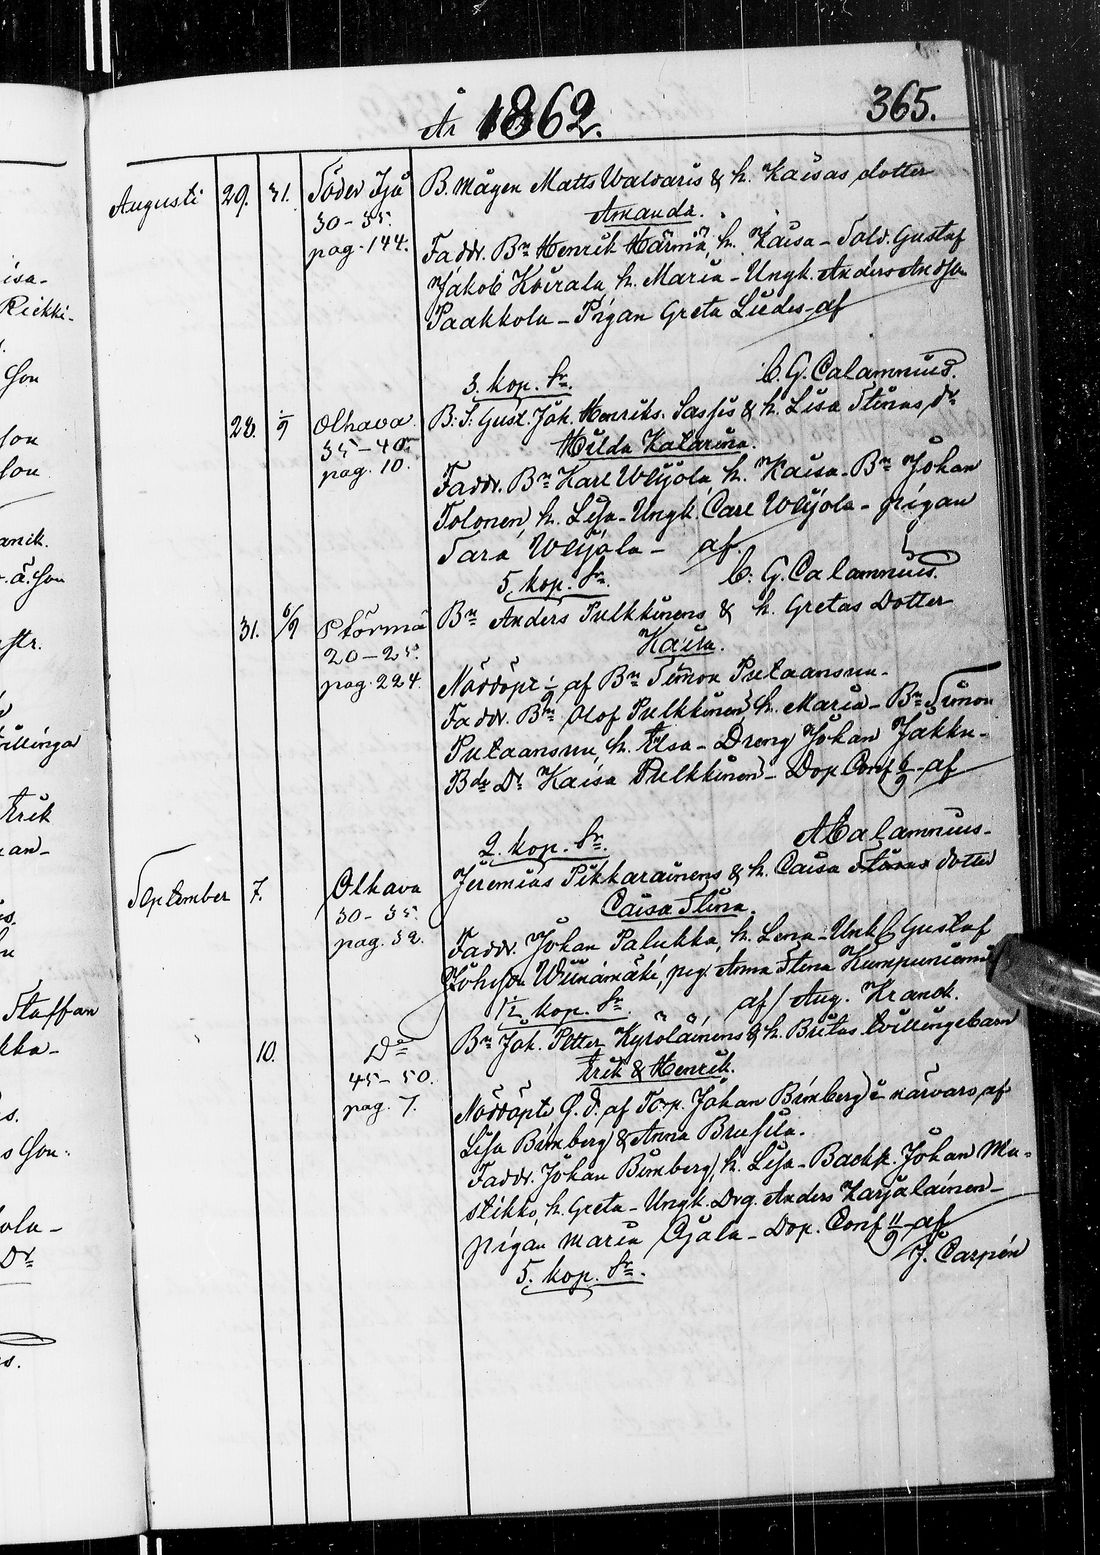 År 1862.
365.
Augusti 29. 31. Söder Ijå
30-35.
pag. 144.
B. mågen Matts Waldaris & h. Kaisas dotter
Amanda.
Faddr. Bn Henrik Härmä, h. Kaisa - Sold. Gustaf
Jakob Koirala, h. Maria - Ungk. Anders Andson
Paakkola - Pigan Greta Liedes - af
3. kop. Sr. C. G. Calamnius.
28. 1/9 Olhava
35-40.
pag. 10.
B. S. Gust. Joh. Henriks. Sassis & h. Lisa Stinas dr
Hilda Katarina.
Faddr. Bn Karl Wlijola, h. Kaisa - Bn Johan
Tolonen, h. Lisa - Ungk. Carl Wlijola - pigan
Sara Wlijola - af.
5. kop. Sr. C. G. Calamnius.
31. 6/9
20-25.
pag. 224.
Bn Anders Pulkkinens & h. Gretas Dotter
Kaisa.
Nöddöpt 1/9 af Bn Simon Putaansuu.
Faddr. Bn Olof Pulkkinen, h. Maria - Bn Simon
Putaansuu, h. Elsa - Dreng Johan Jakku -
Bde Dr Kaisa Pulkkinen - Dop. Conf. 6/9 - af
2. kop. Sr. A Calamnius -
September 7. Olhava
30-35.
pag. 32.
Jeremias Pikkarainens & h. Caisa Stinas dotter
Caisa Stina.
Faddr. Johan Palukka, h. Lena - Gustaf
Johsson Wiinämäki, pig. Anna Stina
1 1/2 kop. Sr. af / Aug. Kranck.
10. Do
45-50.
pag. 7.
Bn Joh. Petter Kyröläinens & h. Britas tvillingebarn
Erik & Henrik.
Nöddöpte G. D. af Torp. Johan Bimberg i närvaro af
Lisa Bimberg & Anna Brusila.
Faddr. Johan Bimberg, h. Lisa - Backst. Johan Mu-
stikko, h. Greta - Ungk. Drg. Anders Karjalainen -
pigan Maria Ojala - Dop. Conf. 11/9 - af
5. kop. Sr. J. Carpén